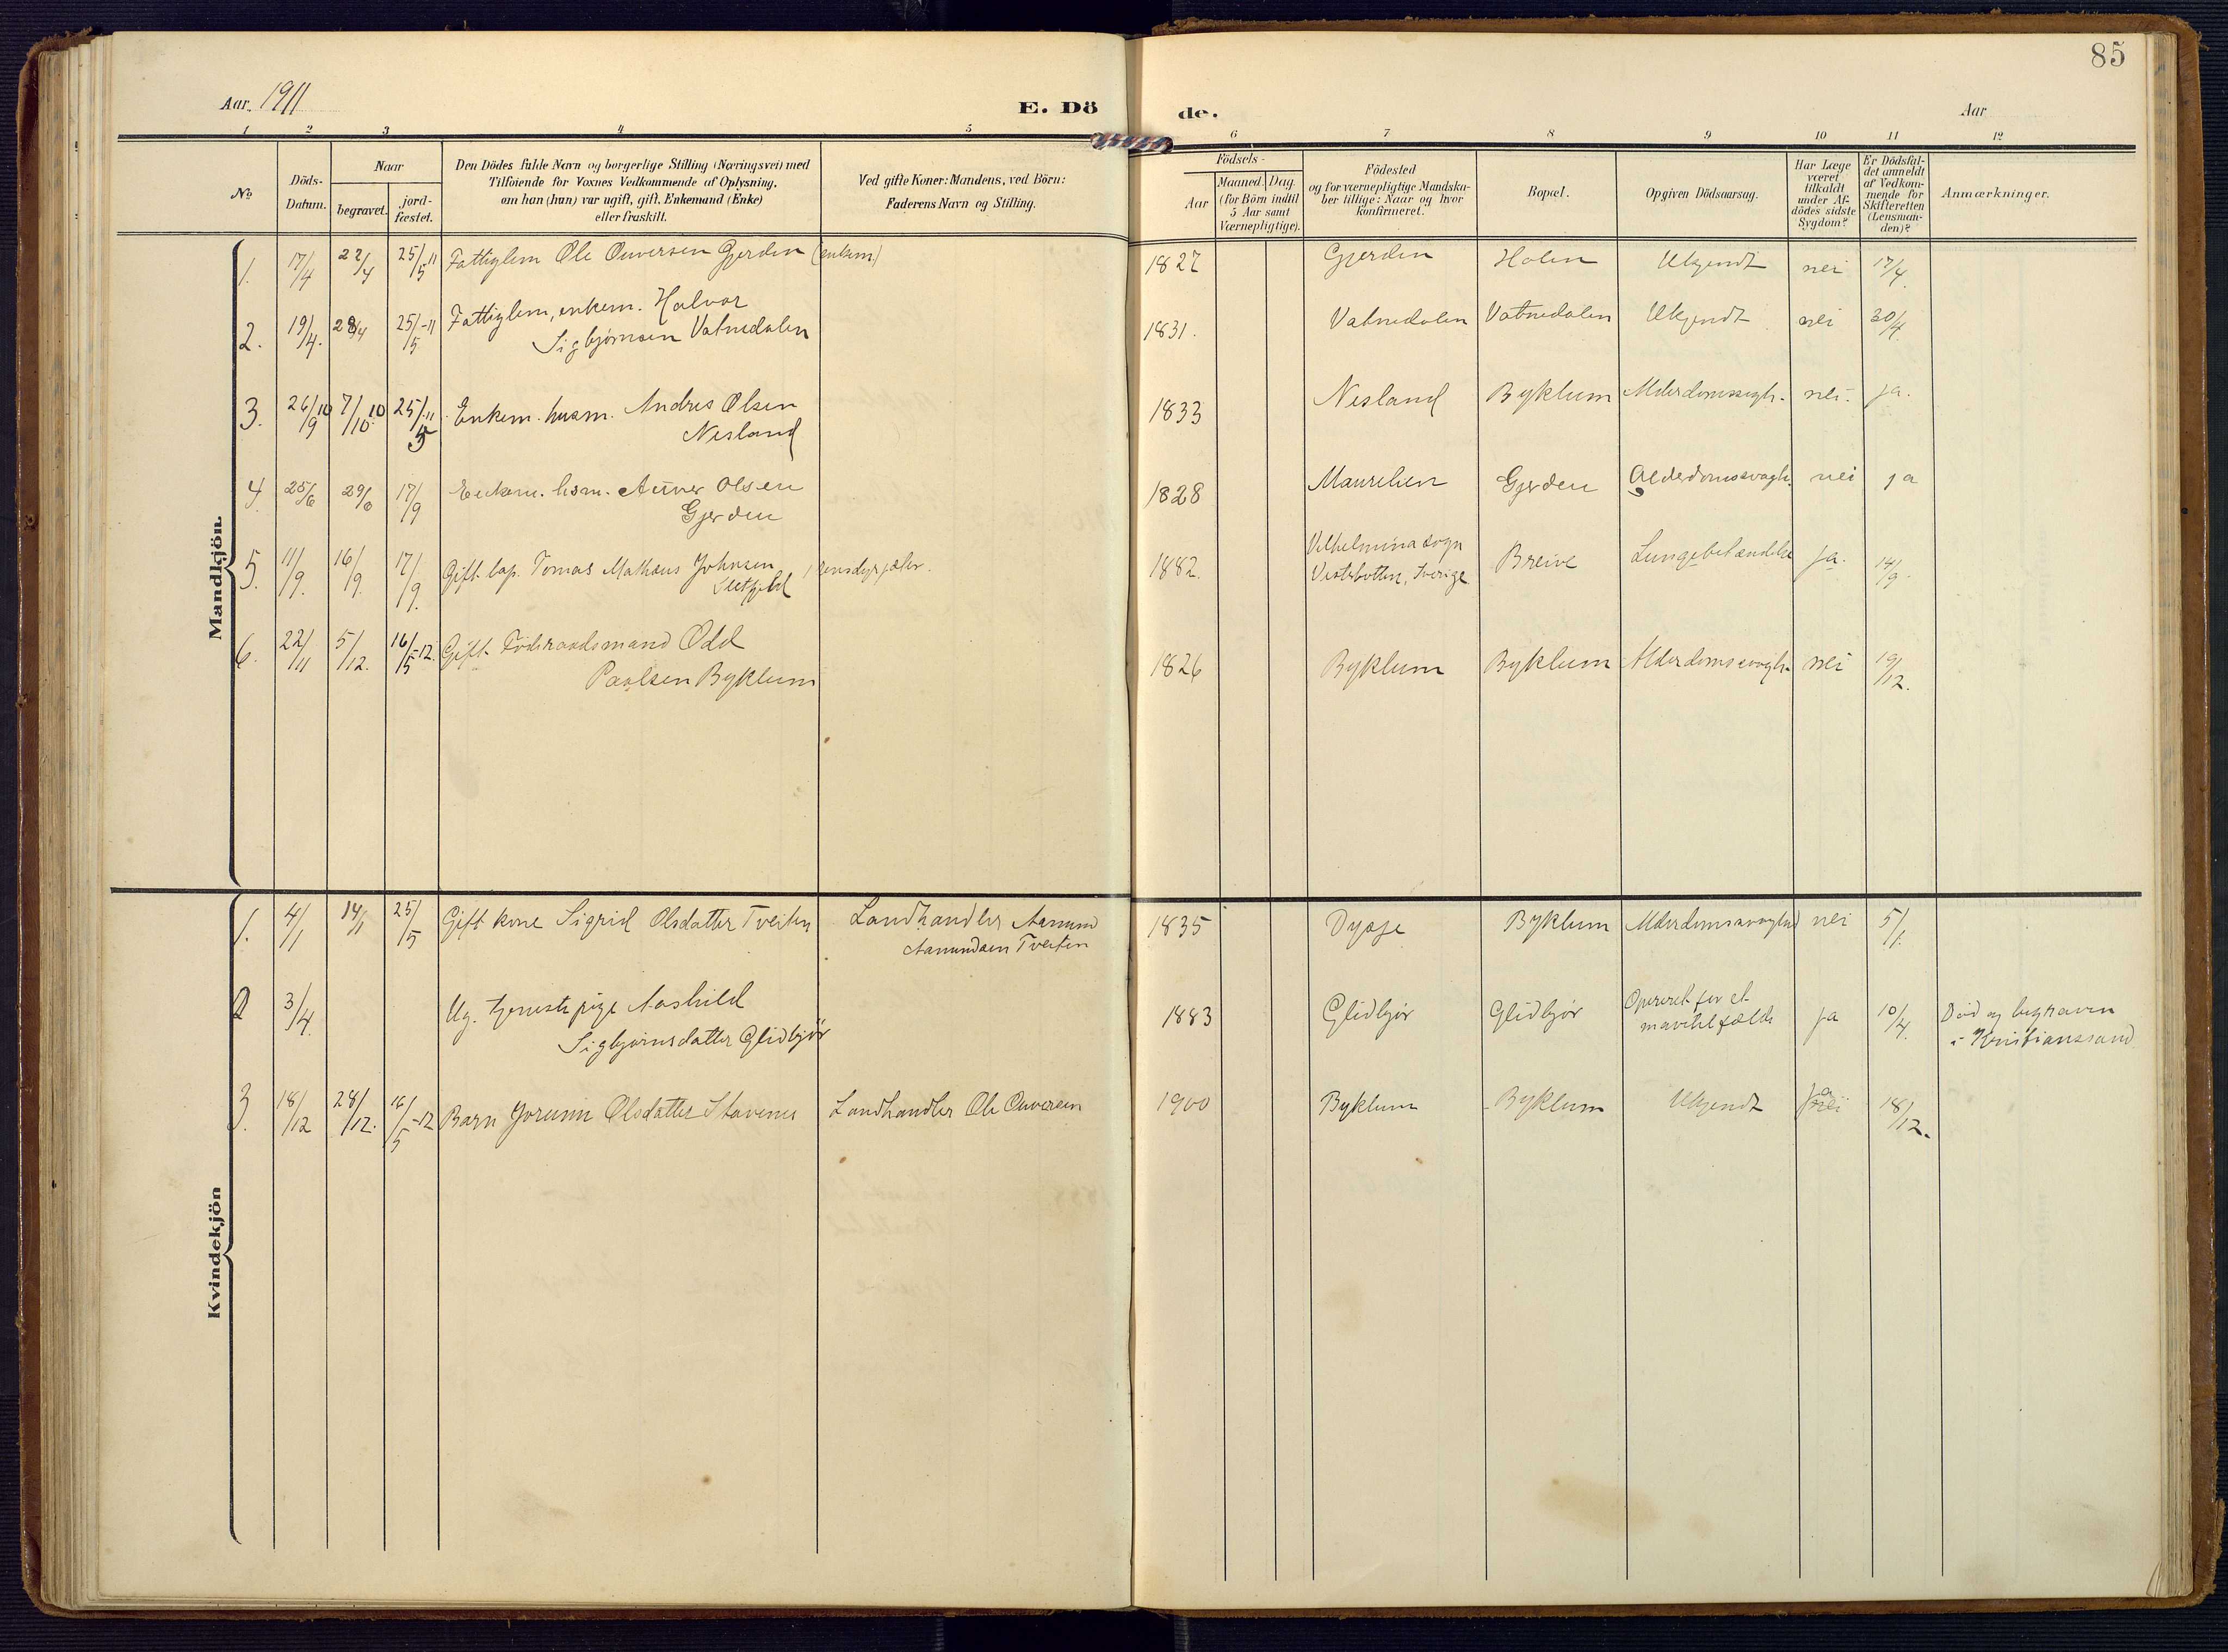 85
Aar. 1911
E. Dö
de.
Aar
1 2 3 4 5 6 7 8 9 10 11 12
No
Döds-
Datum.
Naar
begravet.
jord-
fæstet.
Den Dödes fulde Navn og borgerlige Stilling (Næringsvei) med
Tilföiende for Voxnes Vedkommende af Oplysning,
om han (hun) var ugift, gift, Enkemand (Enke)
eller fraskilt.
Ved gifte Koner: Mandens, ved Börn:
Faderens Navn og Stilling.
Födsels-
Aar
Maaned. Dag.
(for Börn indtil
5 Aar samt
Værnepligtige).
Födested
og for værnepligtige Mandska-
ber tillige: Naar og hvor
konfirmeret.
Bopæl.
Opgiven Dödsaarsag.
Har Læge
været
tilkaldt
under Af-
dödes sidste
Sygdom?
Er Dödsfal-
det anmeldt
af Vedkom-
mende for
Skifteretten
(Lensman-
den)?
Anmærkninger.
Mandkjön.
1. 17/4 22/4 25/5-11 Fattiglem Ole Ouversen Gjerden (enkem) 1827 Gjerden Holen Ukjendt nei 17/4.
2. 19/4. 28/4 25/5-11 Fattiglem, enkem. Halvor
Sigbjørnsen Vatnedalen 1831. Vatnedalen Vatnedalen Ukjendt nei 30/4.
3. 26/9 10 7/10 10 25/5-11 Enkem. husm. Andres Olsen
Nesland 1833 Nesland Byklum Alderdomssvagh. nei. ja.
4. 25/6 29/6 17/9 Enkem. hsm. Auver Olsen
Gjerden 1828 Maurelien Gjerden Alderdomssvagh. nei ja
5. 11/9. 16/9. 17/9. Gift lap. Tomas Mathæus Johnsen rensdyrgjæter.
1882. Vilhelmina sogn
Vesterbotten, Sverige Breive Lungebetændelse ja. 14/9.
6. 22/11 5/12. 16/5-12. Gift Föderaadsmand Odd
Paalsen Byklum 1826 Byklum Byklum Alderdomssvagh. nei 19/12.
Kvindekjön
1. 4/1 14/1 25/5 Gift kone Sigrid Olsdatter Tveiten Landhandler Aamund
Aamundsen Tveiten 1835 Byklum Alderdomssvaghed nei 5/1.
2 3/4. Ug. tjenestepige Aashild
Sigbjørnsdatter Glidbjör 1883 Glidbjør Glidbjør Opereret for et
ja 10/4. Död og begraven
i Kristianssand
3. 18/12 28/12. 16/5-12 Barn Jorunn Olsdatter Stavenes Landhandler Ole Ouversen 1900 Byklum Byklum Ukjendt ja nei 18/12.